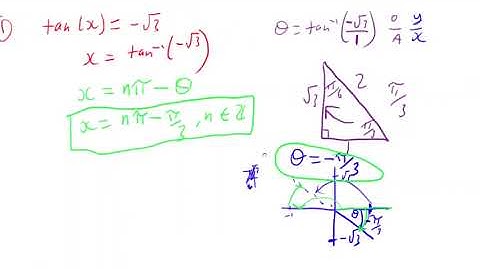 1)
tan(x) = -√3
x = tan⁻¹(-√3)
x = nπ - θ
x = nπ - π/3, n ∈ ℤ
θ = tan⁻¹(-√3/1) O/A y/x
√3 2 π/6 π/3
π/3
1
θ = -π/3
√3
-1
θ -π/3
-√3